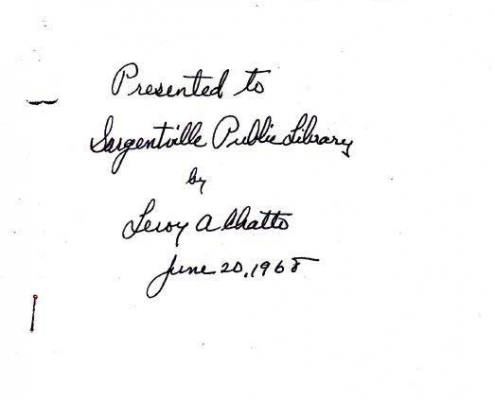 Presented to
Sargentville Public Library
by
Leroy A Chatto
June 20, 1968